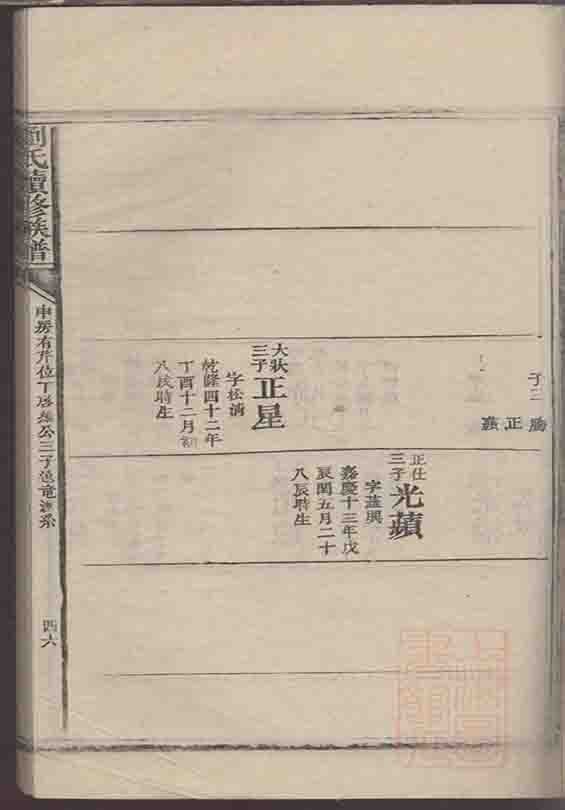 子三
正
正仕
三子
光蘋
字蓋興
嘉慶十三年戊
辰閏五月二十
八辰時生
大狀
三子
正星
字松清
乾隆四十二年
丁酉十二月初
八辰時生
劉氏續修族譜
申房有芹位丁公三子系
四六